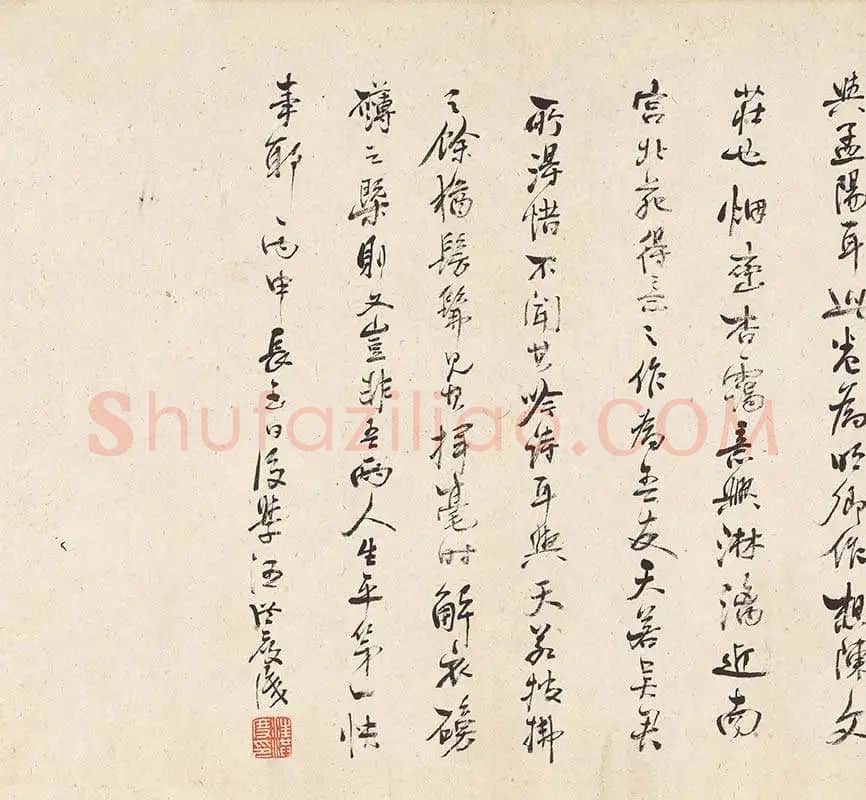 與孟陽耳此卷為明卿作想陳文
莊也烟巒杳靄意興淋漓近南
宮北苑得意之作為吾友天若吴君
所得惜不聞其吟詩耳與天若披拂
之餘猶髣髴見其揮毫時解衣磅
礴之槩則又豈非吾兩人生平第一快
事耶 丙申長至日後學汪洪度識
Shufaziliao.COM